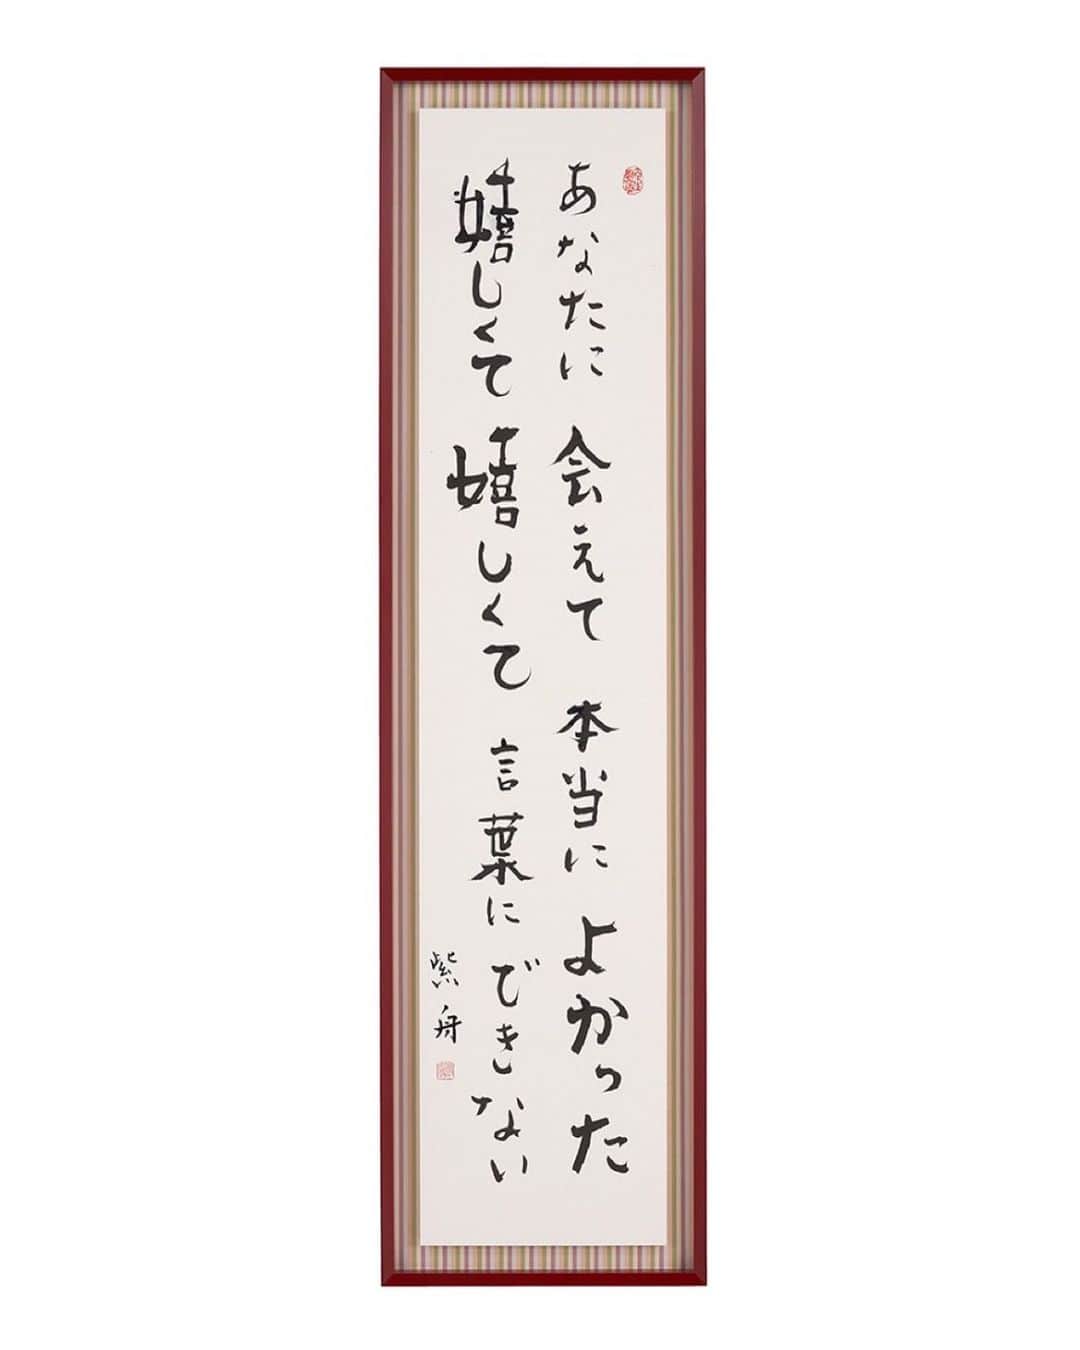 あなたに 会えて 本当に よかった
嬉しくて 嬉しくて 言葉に できない
紫舟